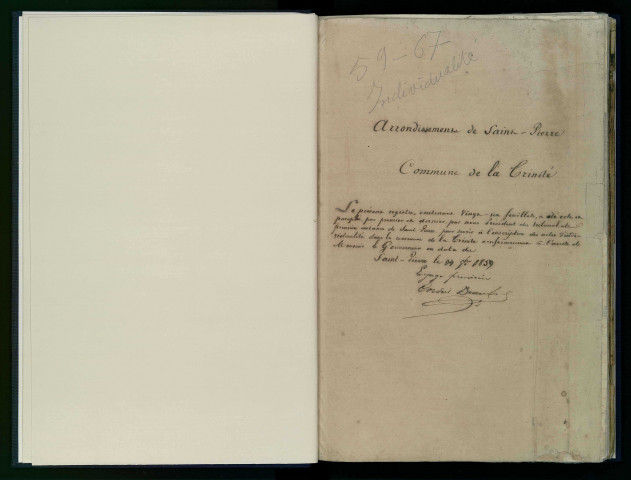 59-67
Individualité
Arrondissement de Saint-Pierre
Commune de la Trinité
Le présent registre, contenant Vingt-un feuillets, a été coté et
paraphé par premier et dernier par nous Président du tribunal de
première instance de Saint Pierre pour servir à l'inscription des actes d'indi-
vidualité dans la commune de la Trinité conformément à l'arrêté de
Monsieur le Gouverneur en date du
Saint-Pierre le 1859